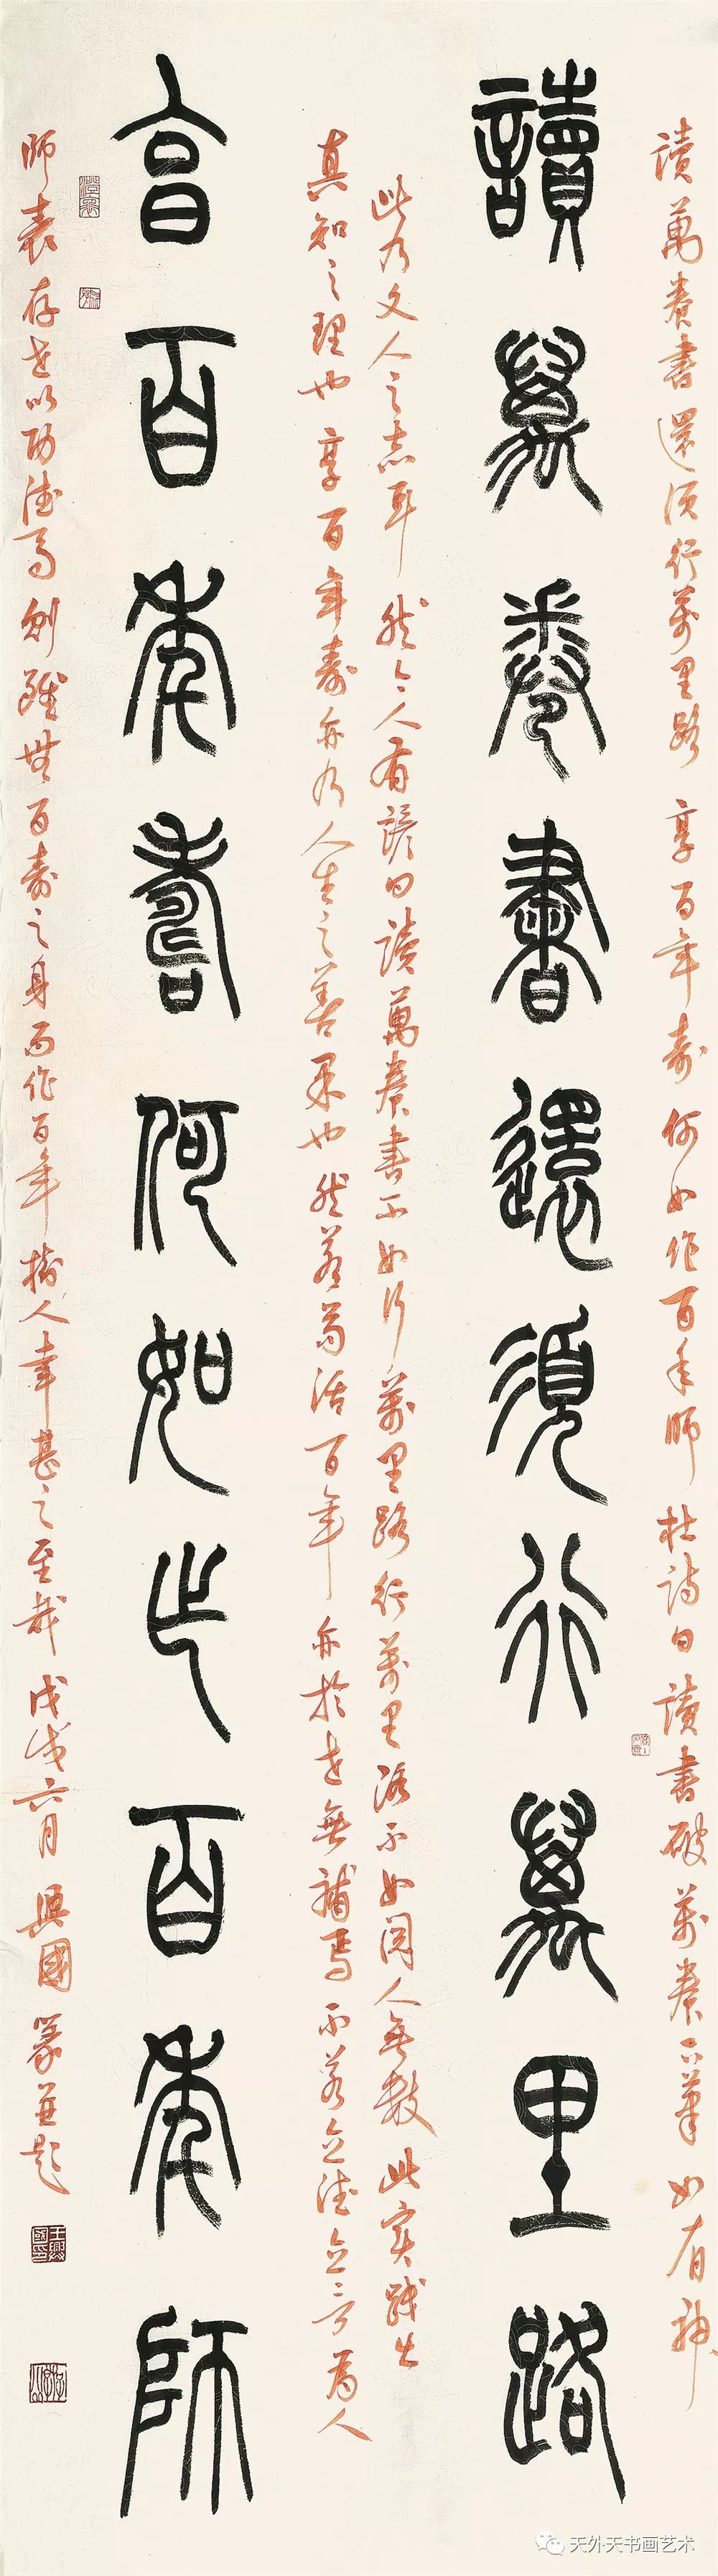 讀萬卷書還須行萬里路 享百年壽何如作百年師 杜詩曰 讀書破萬卷下筆如有神
讀萬卷書還須行萬里路
此乃文人之志耳 然今人有諺曰讀萬卷書不如行萬里路行萬里路不如閱人無數 此實踐出
真知之理也 享百年壽亦乃人生之善果也 然若苟活百年 亦於世無補焉 不若立德立言 為人
享百年壽何如作百年師
師表存世以功德焉 則雖無百壽之身而作百年樹人幸甚之至哉 戊戌六月 興國篆並題
王興國印
天外天书画艺术